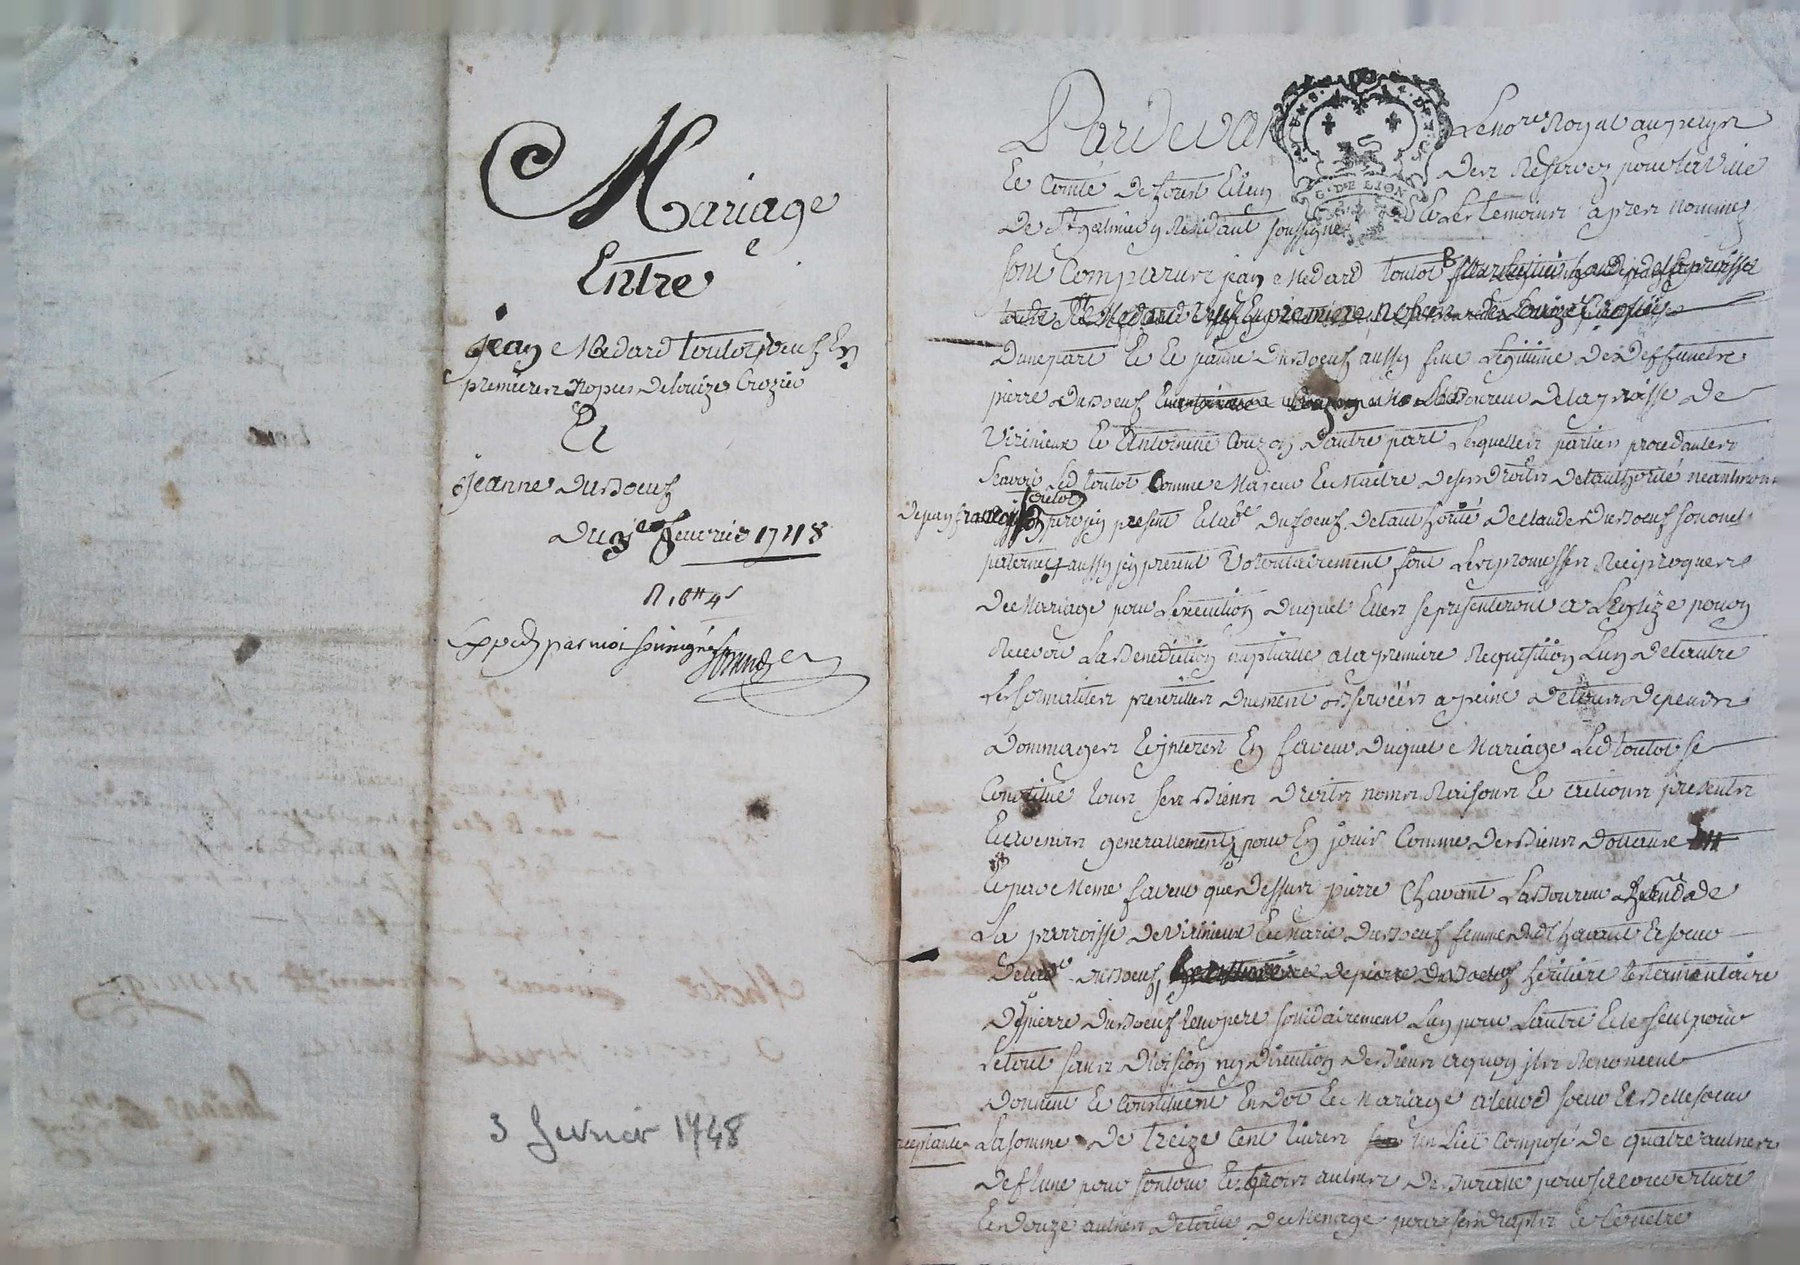 Mariage
Entre
jean Medard toulot veuf En
premieres Nopces de louize Crozie
Et
Jeanne Duboeuf
Du 3e feurier 1748
Exped par moi soussigné
3 fevrier 1748
Pardevant Le nore Royal au
Le Comté de forest Et un Des Reservez pour la ville
De St galmier y Residant soussigné Et Les temoins apres nommez
sont Comparus jean Medard toulot
Dune part Et Et jeanne Duboeuf aussy fille Legitime De Deffunctz
pierre Duboeuf Laboureur De la parroisse De
Viricieux Et Antoinette Couzon Dautre part Lesquelles parties procedantes
Scavoir Led toulot Comme Majeur Et Maitre De ses Droits De lauthorité neantmoins
De jean francois toulot present Et lade Duboeuf De lauthorité De Claude Duboeuf son oncle
paternel aussy jcy present Volontairement font Les promesses Reciproques
De Mariage pour Lexecution Duquel Elles se presenteront a Leglize pour y
Recevoir La Benediction nuptialle a la premiere Requisition Lun De lautre
Les formalites prescrittes Duement observéés a peine De tous Depens
Dommages Et jnterets En faveur Duquel Mariage Led toulot se
Constitue tous ses Biens Droits noms Raisons Et actions presents
Et avenirs generallement pour En jouir Comme De Biens Dotaux
Et par Meme faveur que Dessus pierre Chavant Laboureur De
La parroisse De Viricieux Et Marie Duboeuf femme Dud Chavant Et soeur
De lade Duboeuf heritiere testamentaire
De pierre Duboeuf Leur pere solidairement Lun pour Lautre Et le seul pour
Le tout sans Division ny Discution De Biens a quoy jls Renoncent
Donnent Et Constituent En Dot Et Mariage a leurd soeur Et Belle soeur
acceptante La somme De treize Cent livres un Lict Composé De quatre aulnes
De pour son tour Et trois aulnes De pour sa Couverture
Et Douze aulnes De toille De Menage pour ses Draps Et